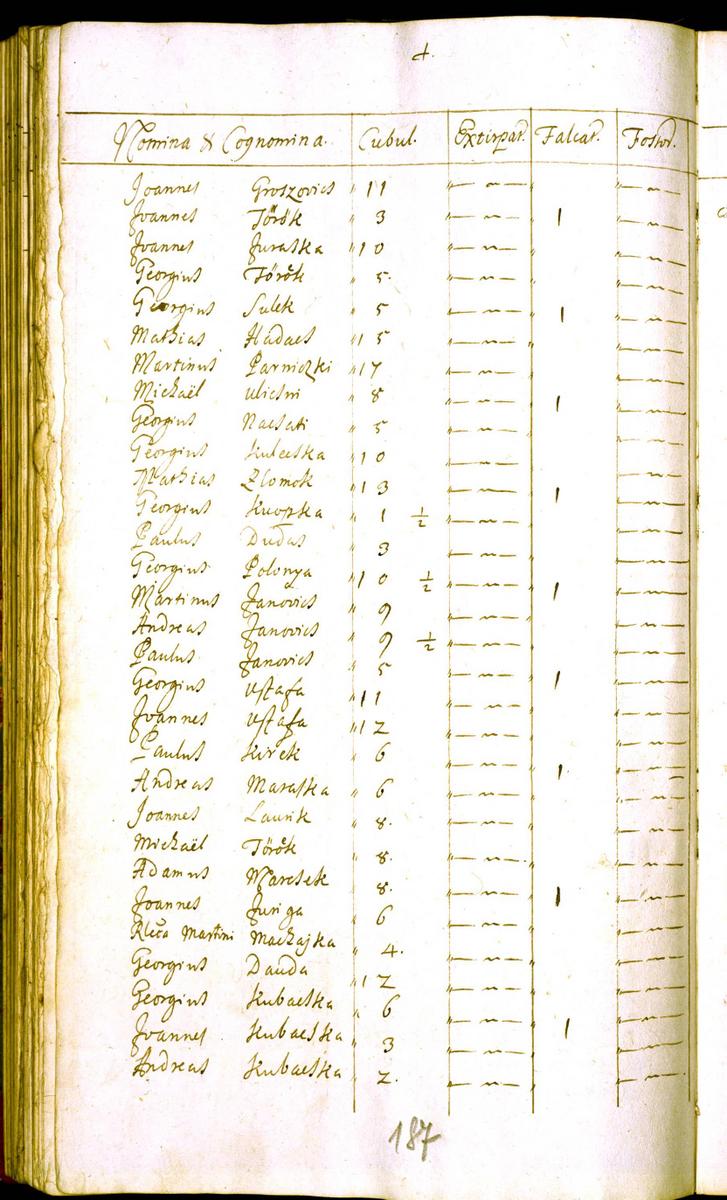 4.
Nomina & Cognomina. Cubul. Extirpat. Falcat. Fossor.
Joannes Groszovics " 11 "—"— " "—"—
Joannes Török " 3 "—"— 1 "—"—
Joannes Juraska " 10 "—"— " "—"—
Georgius Török " 5. "—"— " "—"—
Georgius Sulek " 5 "—"— 1 "—"—
Mathias Hadacs " 15 "—"— " "—"—
Martinus Parniczki " 17 "—"— " "—"—
Michaël Ulicsni " 8 "—"— 1 "—"—
Georgius Nacsati " 5 "—"— " "—"—
Georgius Kulcska " 10 "—"— " "—"—
Mathias Zlomok " 13 "—"— 1 "—"—
Georgius " 1 ½ "—"— " "—"—
Paulus Dudas " 3 "—"— " "—"—
Georgius Polonya " 10 ½ "—"— 1 "—"—
Martinus Janovics " 9 "—"— " "—"—
Andreas Janovics " 9 ½ "—"— " "—"—
Paulus Janovics " 5 "—"— 1 "—"—
Georgius Ustafa " 11 "—"— " "—"—
Joannes Ustafa " 12 "—"— " "—"—
Paulus Kirek " 6 "—"— 1 "—"—
Andreas Maraska " 6 "—"— " "—"—
Joannes Laurik " 8. "—"— " "—"—
Michaël Török " 8. "—"— " "—"—
Adamus Marcsek " 8. "—"— 1 "—"—
Joannes Juriga " 6 "—"— " "—"—
Rlča Martini Machajka " 4. "—"— " "—"—
Georgius Dauda " 12 "—"— " "—"—
Georgius Kubacska " 6 "—"— 1 "—"—
Joannes Kubacska " 3 "—"— " "—"—
Andreas Kubacska " 2. "—"— " "—"—
187